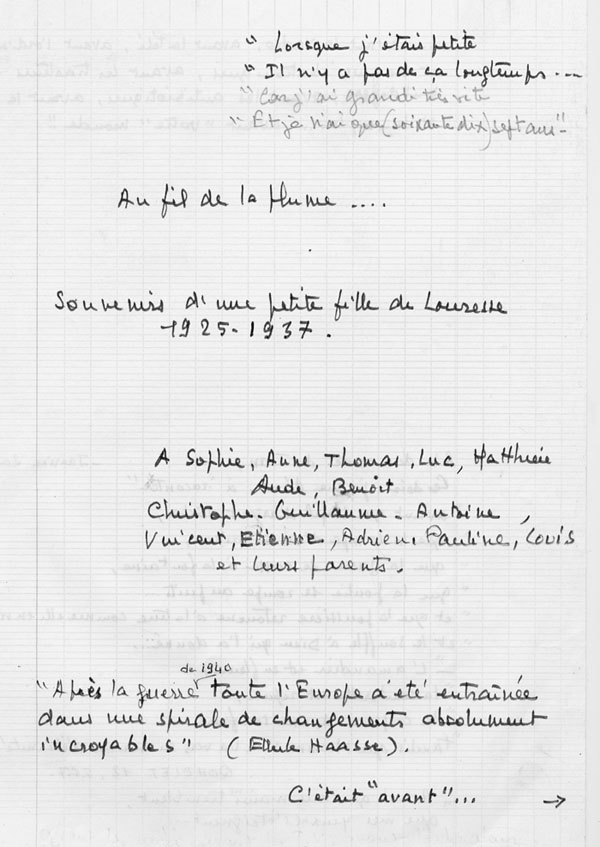 " Lorsque j'étais petite
" Il n'y a pas de ça longtemps ...
" Car j'ai grandi très vite
" Et je n'ai que (soixante dix) sept ans "
Au fil de la plume ....
Souvenirs d'une petite fille de Louresse
1925-1937.
A Sophie, Anne, Thomas, Luc, Matthieu
Aude, Benoît
Christophe. Guillaume. Antoine,
Vincent, Etienne, Adrien, Pauline, Louis
et leurs parents.
de 1940
"Après la guerre toute l'Europe a été entraînée
dans une spirale de changements absolument
incroyables" ( Haasse).
C'était "avant"... →